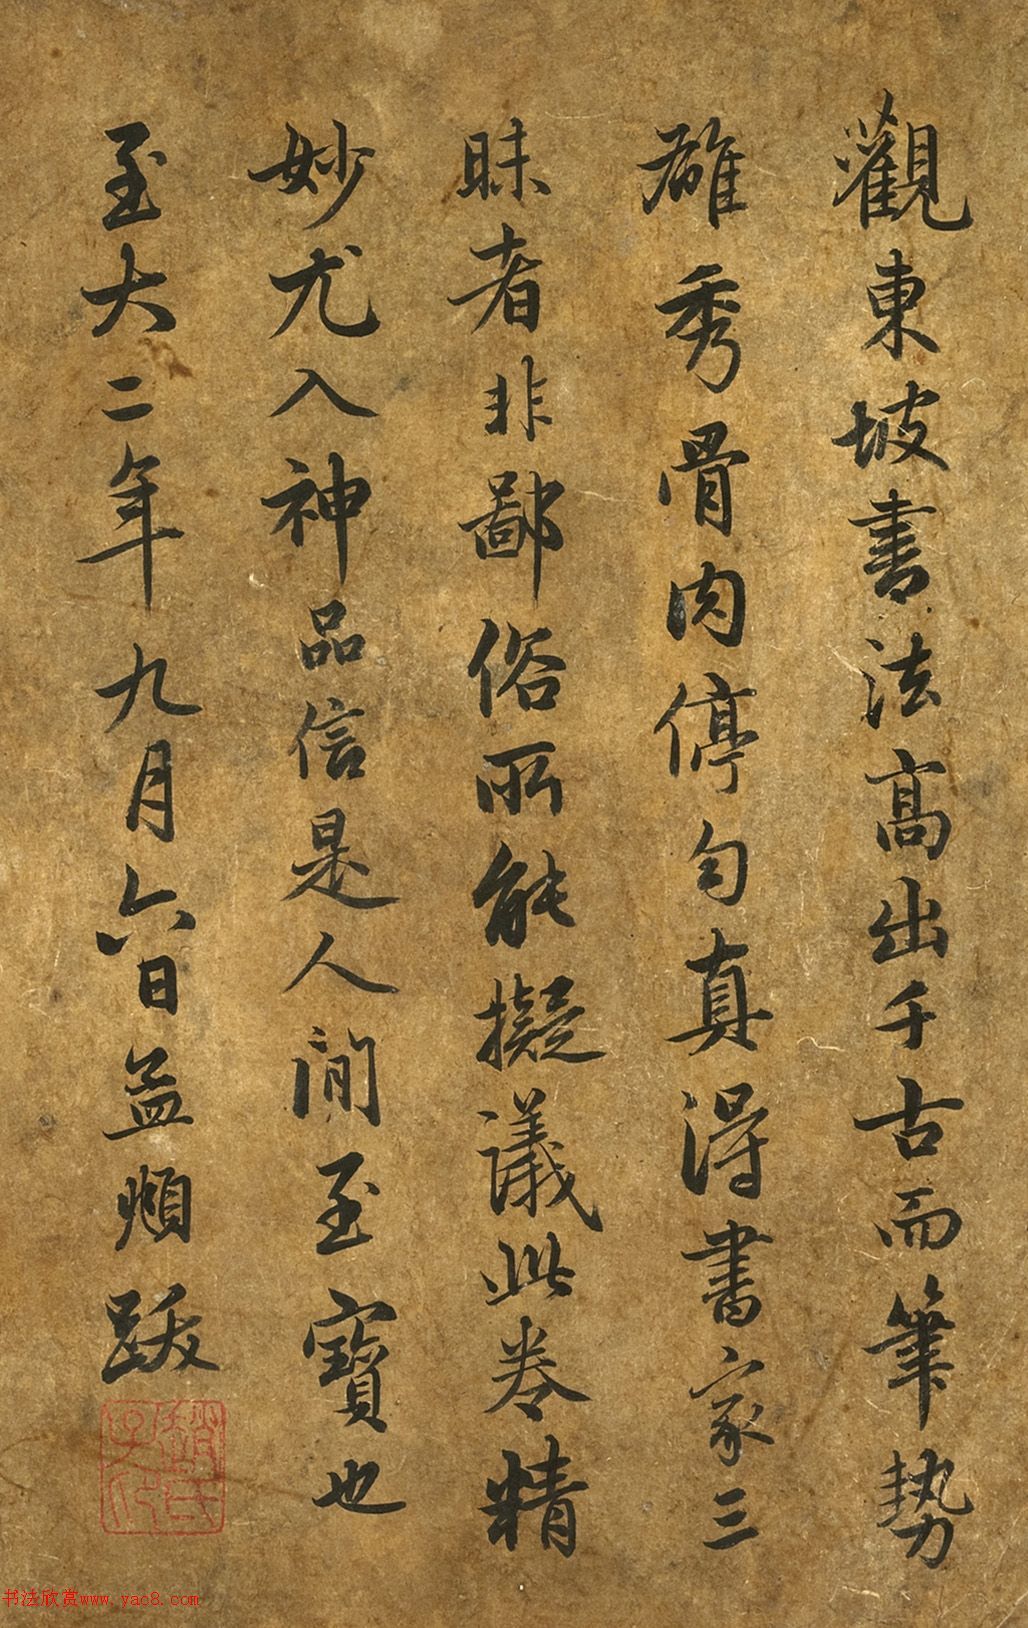 觀東坡書法高出千古而筆勢
雄秀骨肉停勻真得書家三
昧者非鄙俗所能擬議此卷精
妙尤入神品信是人間至寶也
至大二年九月六日孟頫跋
趙氏子印
书法欣赏www.yac8.com